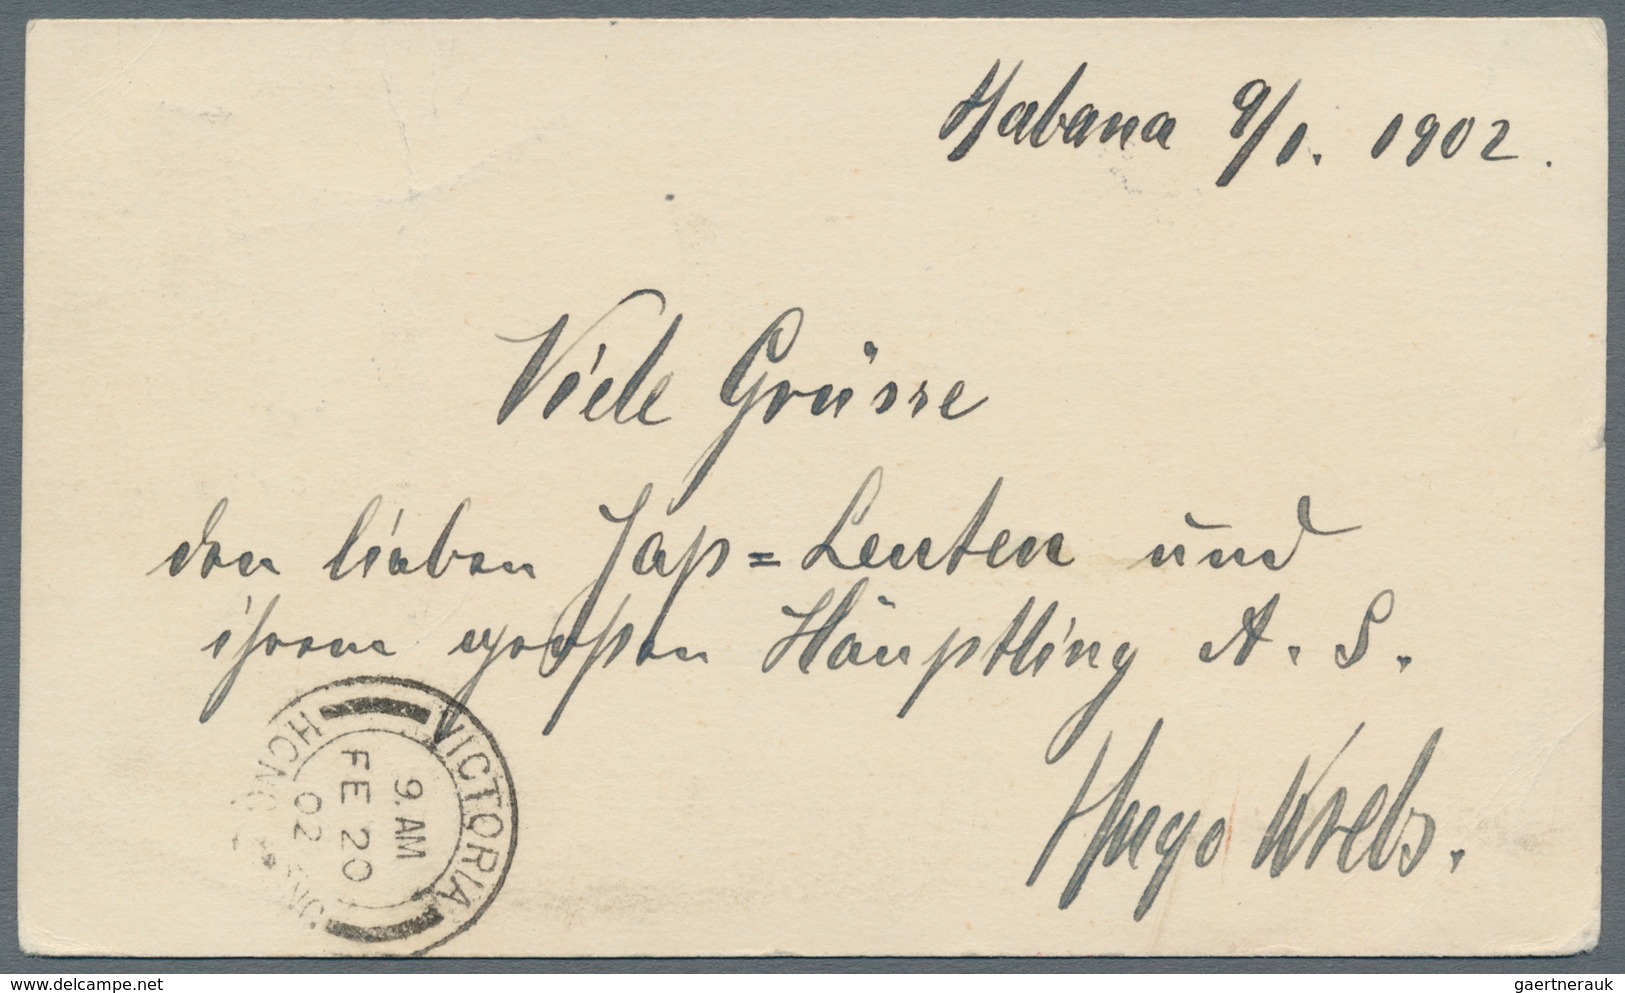 Habana 9/1. 1902.
Viele Grüsse
den lieben Jap=Leuten und
ihrem großen Häuptling A. S.
Hugo Krebs.
VICTORIA
HONG
9. AM
FE 20
02
delcampe.net
gaertnerauk